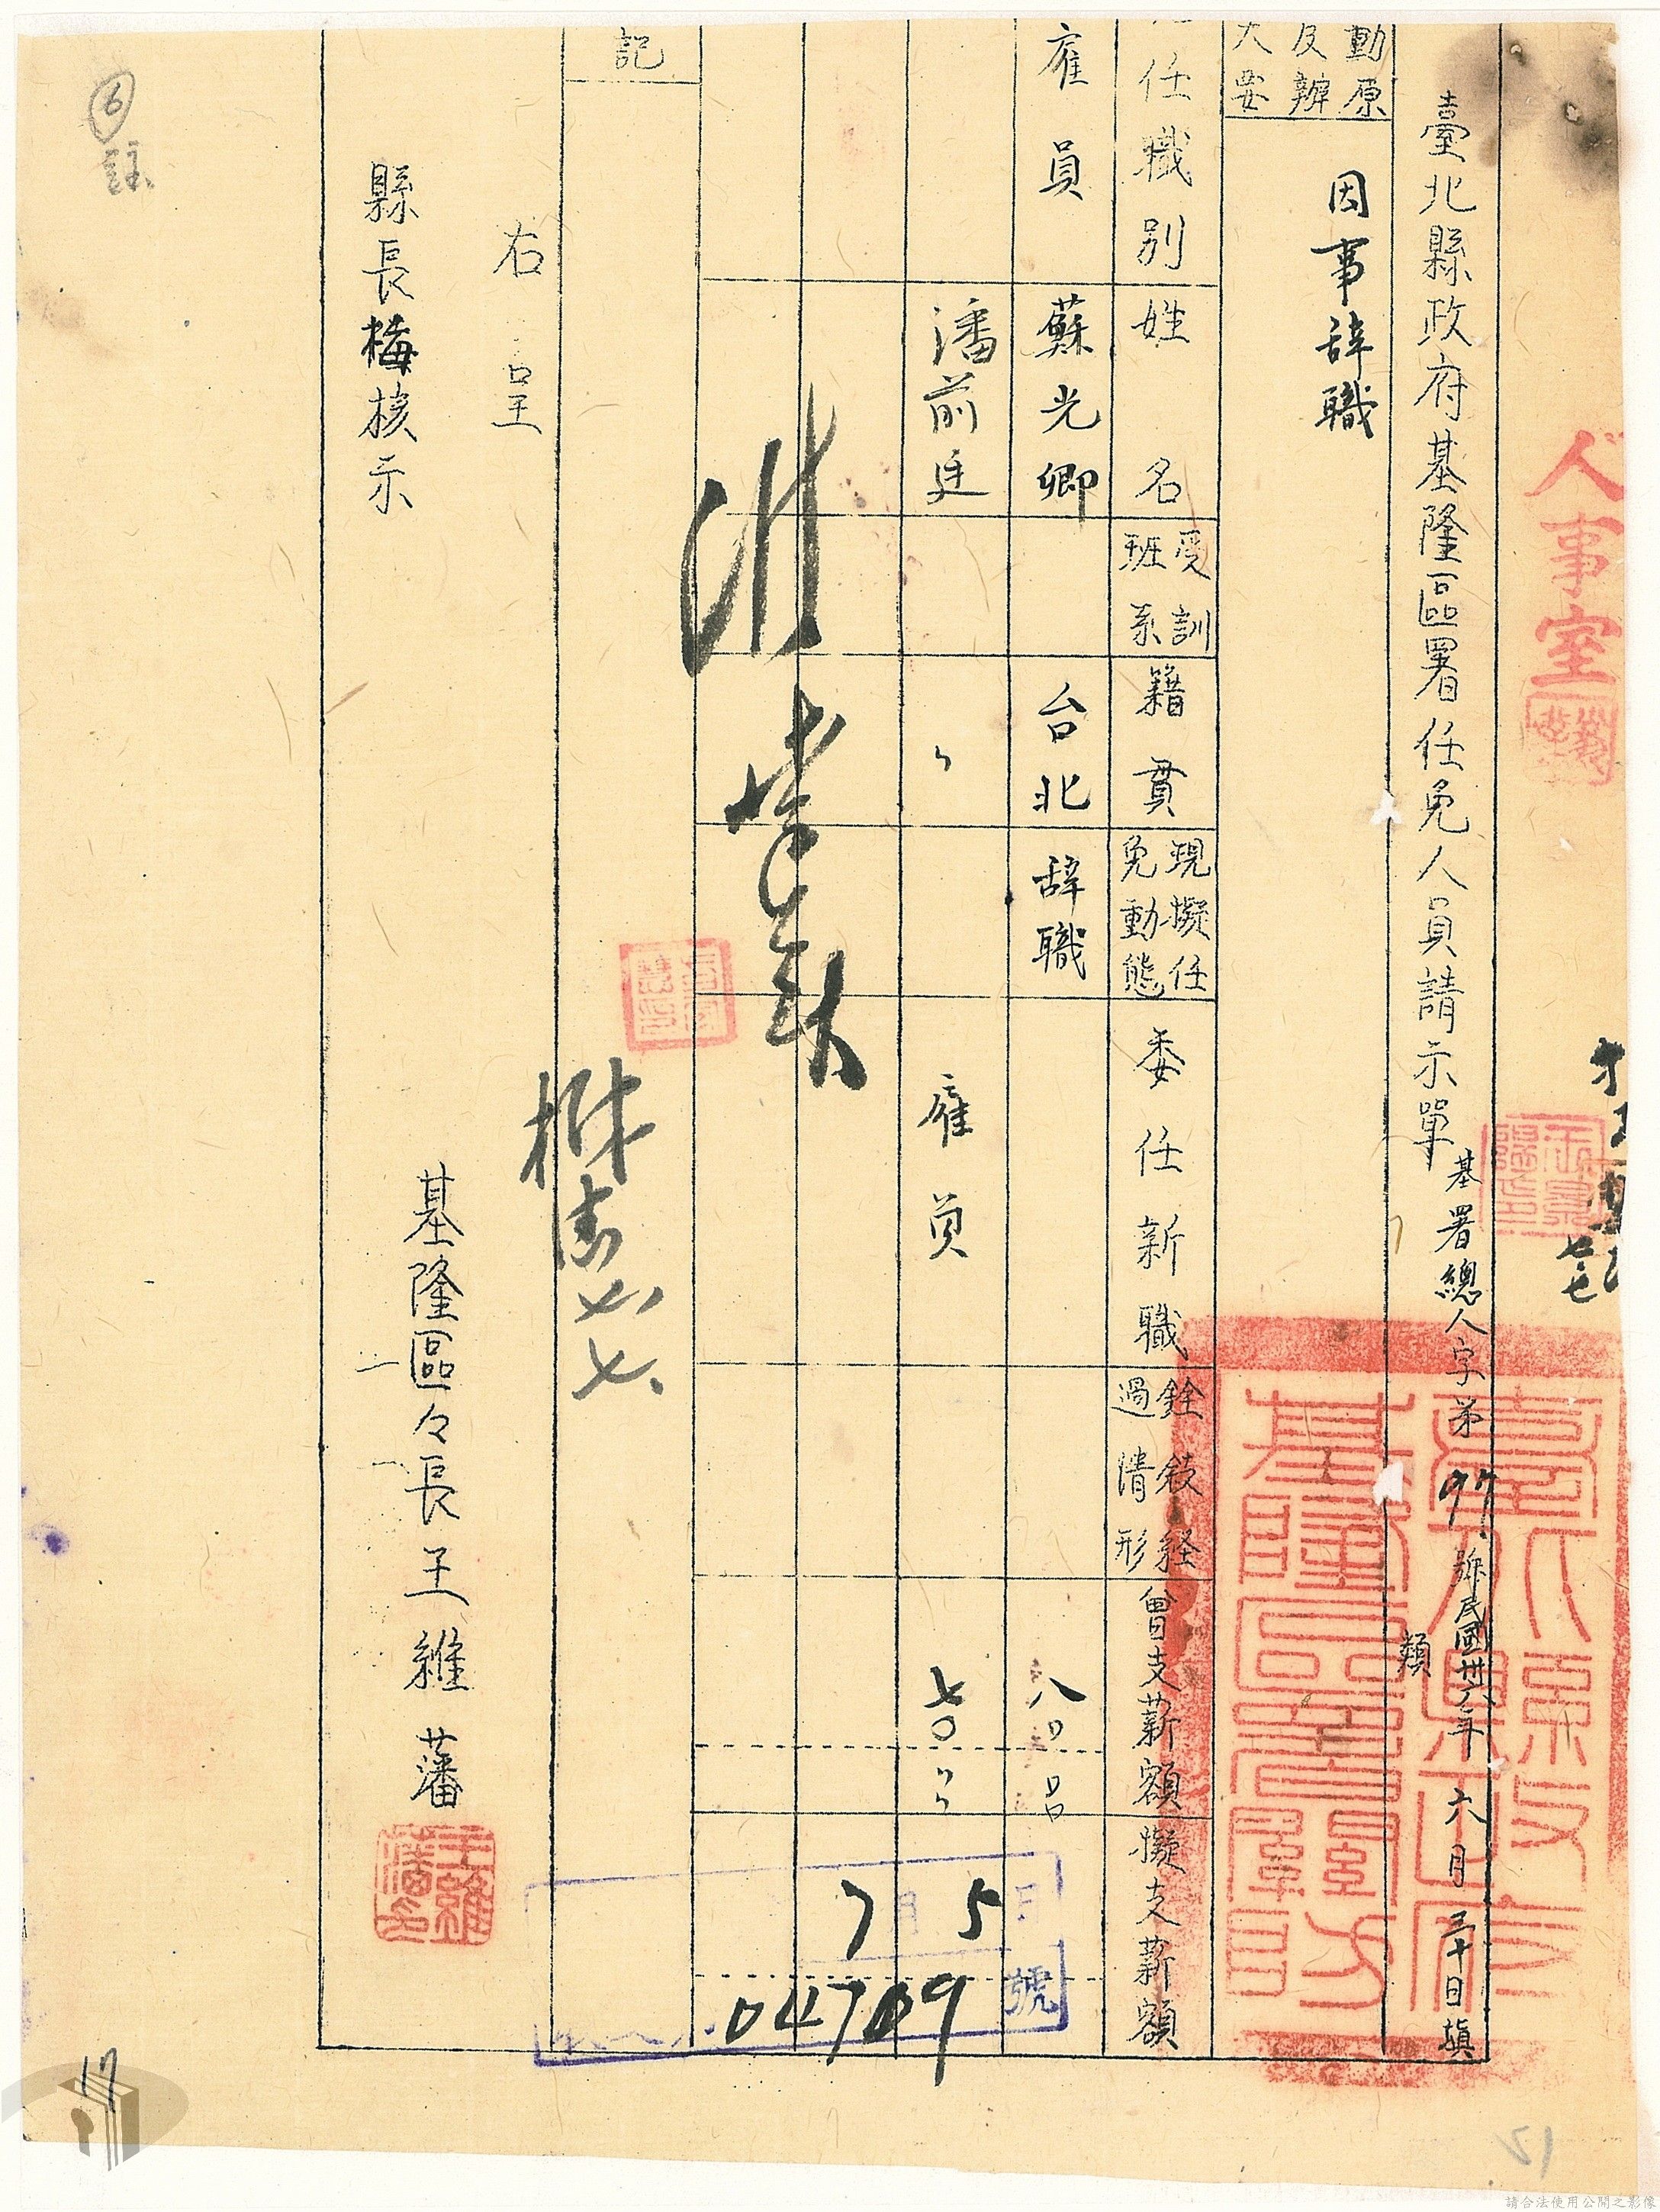 人事室
七、七
臺北縣政府基隆區署任免人員請示單
基署總人字第97號民國卅六年六月三十日填
類
動原
及辦
大要
因事辞職
任職別
姓名
受訓班系
籍貫
現擬任免動態
委任新職
銓敍経過情形
曾支薪額
擬支薪額
雇員
蘇光卿
台北
辞職
八〇
呂
潘前廷
〃
雇員
七〇
〃
記
7月5日
04709號
七、七、
右呈
縣長梅核示
基隆區々長王維藩
王維藩印
⑥註
17
51
請合法使用公開之影像